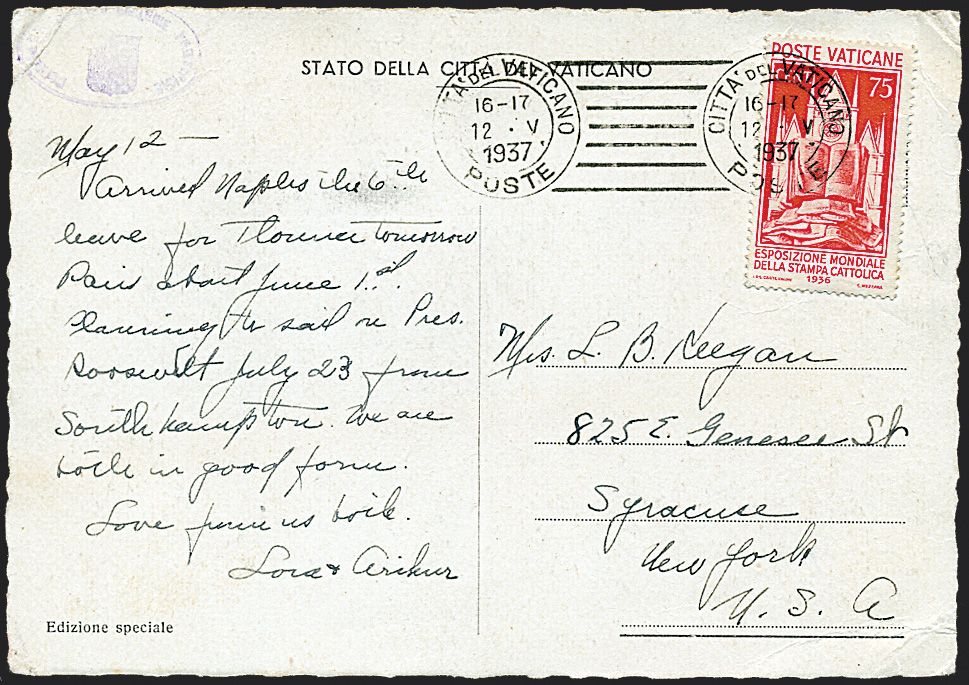 STATO DELLA CITTÀ DEL VATICANO
CITTÀ DEL VATICANO
16-17
12 · V
1937
POSTE
CITTÀ DEL VATICANO
16-17
12 · V
1937
POSTE
POSTE VATICANE
75
ESPOSIZIONE MONDIALE
DELLA STAMPA CATTOLICA
1936
May 12 —
Arrived Naples the 6th
leave for Florence tomorrow
Paris about June 1st.
Planning to sail on Pres.
Roosevelt July 23 from
Southhampton. We are
both in good form.
Love from us both.
Lora & Arthur
Mrs. L. B. Keegan
825 E. Genesee St
Syracuse
New York
U. S. A
Edizione speciale